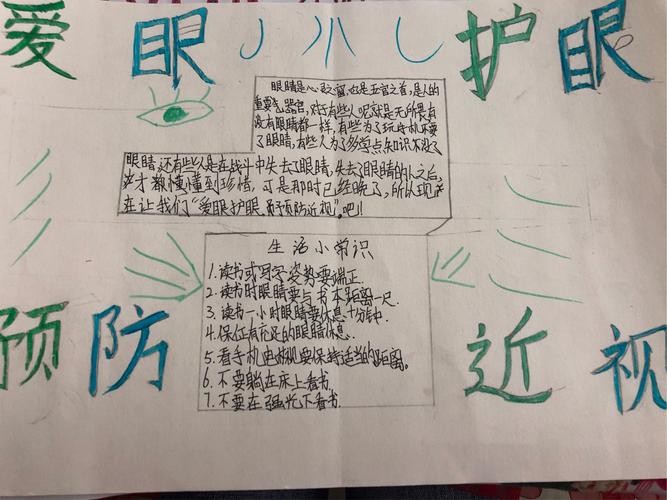 爱眼 护眼
眼睛是心灵之窗,也是五官之首,是人的
重要器官,对于有些人呢就是无所畏有
没有眼睛都一样,有些为了玩手机不要
了眼睛,有些人为了多学点知识不要了
眼睛,还有些人是在战斗中失去了眼睛,失去了眼睛的人之后,
才懂得到珍惜,可是那时已经晚了,所以现
在让我们“爱眼护眼,预防近视”吧!
生活小常识
1.读书或写字姿势要端正.
2.读书时眼睛要与书本距离一尺.
3.读书一小时眼睛要休息十分钟.
4.保证有充足的眼睛休息.
5.看手机电视要保持适当的距离。
6.不要躺在床上看书.
7.不要在强光下看书.
预防 近视